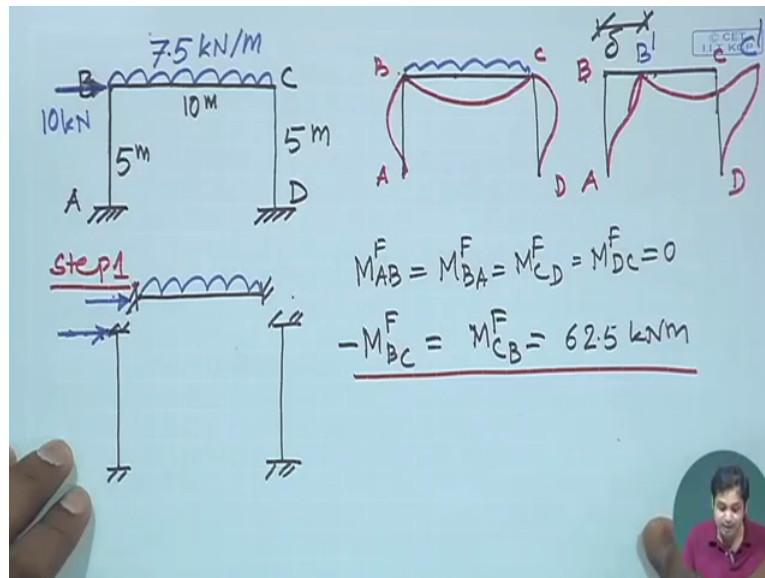 7.5 kN/m
B C
10kN
10m
5m
5m
A D
B C
A D
δ
© CET
I.I.T. KGP
B B' C C'
A D
Step 1
M^F_AB = M^F_BA = M^F_CD = M^F_DC = 0
-M^F_BC = M^F_CB = 62.5 kNm